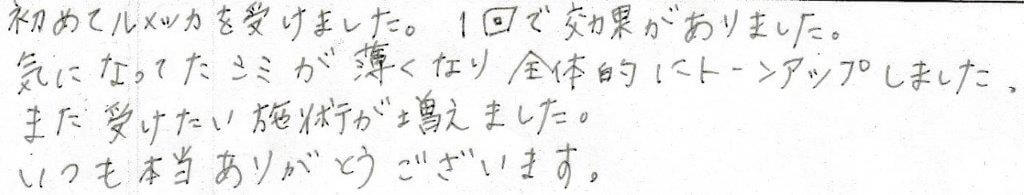 初めてルメッカを受けました。1回で効果がありました。
気になってたシミが薄くなり全体的にトーンアップしました。
また受けたい施術が増えました。
いつも本当ありがとうございます。